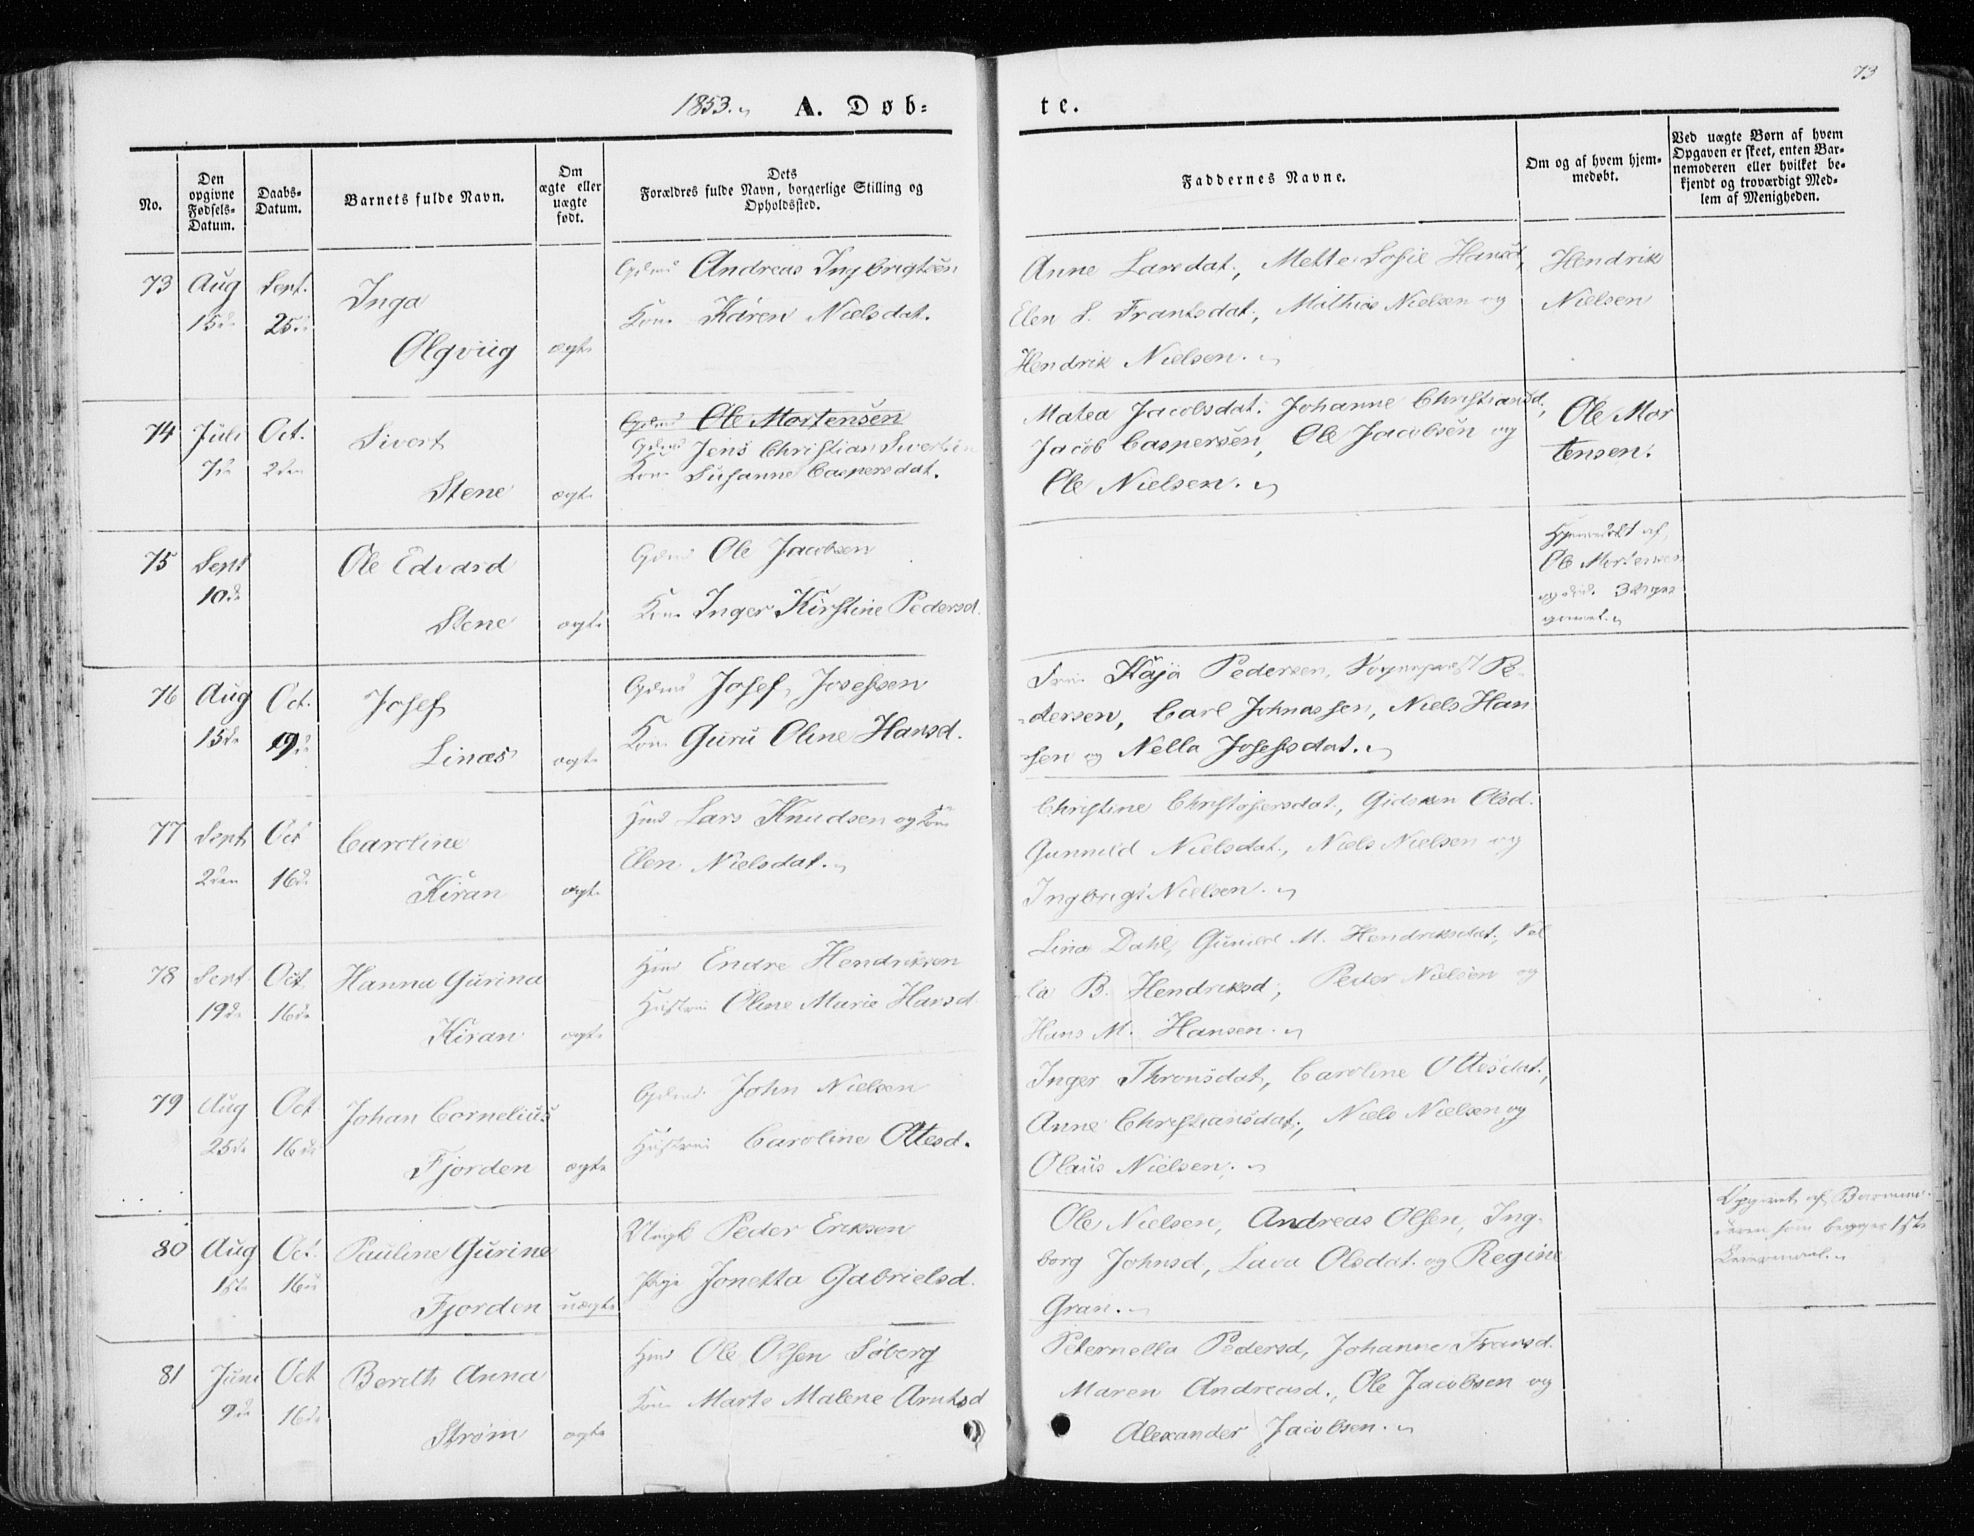 73
1853. A. Døb=
te.
No.
Den opgivne Fødsels-Datum.
Daabs-Datum.
Barnets fulde Navn.
Om ægte eller uægte født.
Dets Forældres fulde Navn, borgerlige Stilling og Opholdssted.
Faddernes Navne.
Om og af hvem hjem-
medøbt.
Ved uægte Børn af hvem
Opgaven er skeet, enten Bar-
nemoderen eller hvilket be-
kjendt og troværdigt Med-
lem af Menigheden.
73 Aug 15de Sept. 25de
Inga
Olgviig ægte
Gdmd Andreas Ingbrigtsen
Kone Karen Nielsdat.
Anne Larsdat., Mette Sofie Hansd,
Elen S. Frantsdat., Mathias Nielsen og
Hendrik Nielsen.
Hendrik
Nielsen
74 Juli 7de Oct. 2den
Sivert
Stene ægte
Gdmd Ole Mortensen
Gdmd Jens Christian Sivertsen
Kone Susanne Caspersdat.
Matea Jacobsdat. Johanne Christiansd,
Jacob Caspersen, Ole Jacobsen og
Ole Nielsen.
Ole Mor
tensen.
75 Sept 10de
Ole Edvard
Stene ægte
Gdmd Ole Jacobsen
Kone Inger Kirstine Pedersd.
Hjemmedøbt af
Ole Mortensen
og død 3 Uger
gammel.
76 Aug 15de Oct. 19de
Josef
Linæs ægte
Gdmd Josef Josefsen
Kone Guru Oline Hansd.
Fru Kaja Pedersen, Sogneprest Pe-
dersen, Carl Johnassen, Niels Han
sen og Nella Josefsdat.
77 Sept 2den Oct 16de
Caroline
Kiran ægte
Hmd Lars Knudsen og Kone
Elen Nielsdat.
Christine Christofersdat., Gidsken Olsd.
Gunnild Nielsdat., Niels Nielsen og
Ingbrigt Nielsen.
78 Sept. 19de Oct. 16de
Hanna Gurina
Kiran ægte
Hmd Endre Hendriksen
Hustrue Oline Marie Hansd
Lina Dahl, Gunild M. Hendriksdat., Nel
la B. Hendriksd, Peder Nielsen og
Hans M. Hansen.
79 Aug 25de Oct 16de
Johan Cornelius
Fjorden ægte
Gdmd. John Nielsen
Hustrue Caroline Ottesd.
Inger Thronsdat, Caroline Ottesdat.,
Anne Christiansdat., Niels Nielsen og
Olaus Nielsen.
80 Aug 1ste Oct. 16de
Pauline Gurine
Fjorden uægte
Ungk Peder Eriksen
Pige Jonetta Gabrielsd.
Ole Nielsen, Andreas Olsen, Ing-
borg Johnsd, Lava Olsdat. og Regine
Gran.
Opgivet af Barnemo-
deren som begges 1ste
Leiermaal.
81 Juni 9de Oct 16de
Bereth Anna
Strøm ægte
Hmd Ole Olsen Søberg
Kone Marte Malene Arntsd
Peternella Pedersd, Johanne Fransd.
Maren Andreasd., Ole Jacobsen og
Alexander Jacobsen.